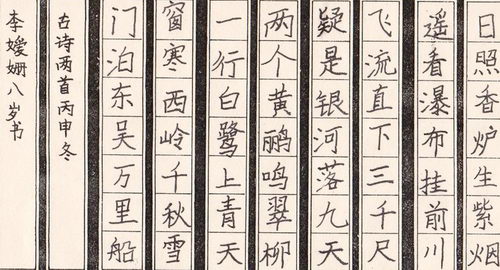 日照香炉生紫烟
遥看瀑布挂前川
飞流直下三千尺
疑是银河落九天
两个黄鹂鸣翠柳
一行白鹭上青天
窗寒西岭千秋雪
门泊东吴万里船
古诗两首丙申冬
李嫒姗八岁书